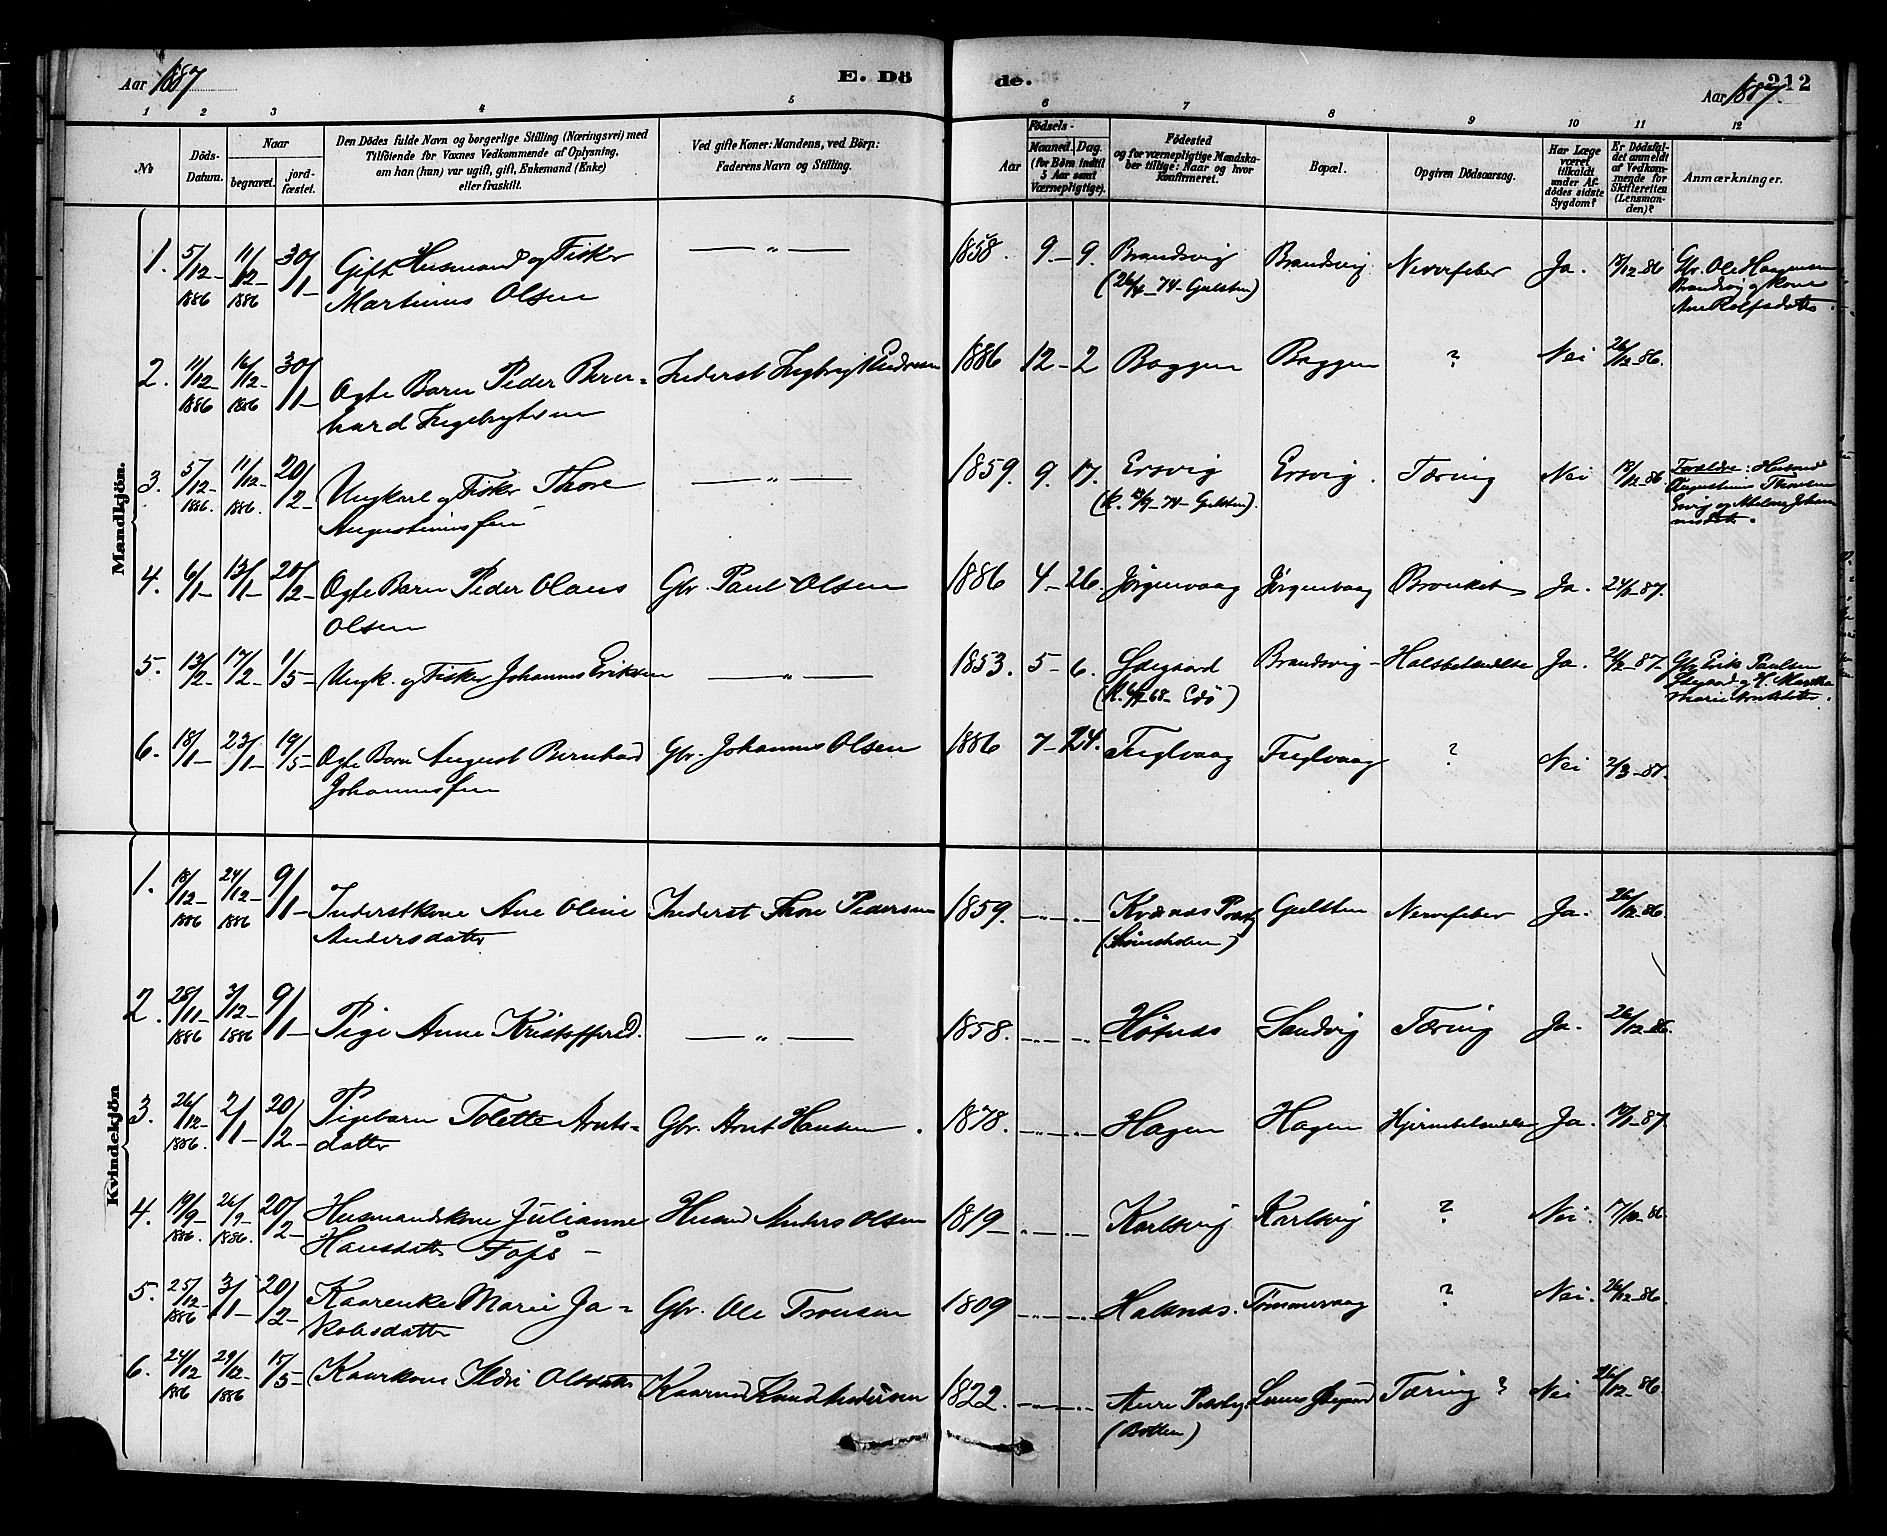 Aar 1887
E. Dö
de.
Aar 1887.
212
1 2 3 4 5 6 7 8 9 10 11 12
No.
Döds-Datum.
Naar
begravet.
jord-fæstet.
Den Dödes fulde Navn og borgerlige Stilling (Næringsvei) med
Tilföiende for Voxnes Vedkommende af Oplysning,
om han (hun) var ugift, gift, Enkemand (Enke)
eller fraskilt.
Ved gifte Koner: Mandens, ved Börn:
Faderens Navn og Stilling.
Födsels-
Aar
Maaned. Dag.
(for Börn indtil
5 Aar samt
Værnepligtige).
Födested
og for værnepligtige Mandska-
ber tillige: Naar og hvor
konfirmeret.
Bopæl.
Opgiven Dödsaarsag.
Har Læge
været
tilkaldt
under Af-
dödes sidste
Sygdom?
Er Dödsfal-
det anmeldt
af Vedkom-
mende for
Skifteretten
(Lensman-
den)?
Anmærkninger.
Mandkjön.
1. 5/12 - 1886 11/12 - 1886 30/1 - Gift Husmand og Fisker — „ — 1858. 9 - 9. Brandsvig Brandsvig Nervefeber Ja. 17/12-86 Gbr. Ole Haagensen
Martinus Olsen (26/4-74- Gulsten) Brandsvig og Kone
Ane Rolfsdatter.
2. 11/12 - 1886 16/12 - 1886 30/1 - Ogte Barn Peder Bern= Inderst Ingebrigt 1886 12 - 2 Baggen Baggen ? Nei 26/12-86.
hard Ingebrigtsen
3. 5/12 - 1886. 11/12 - 1886. 20/2 - Ungkarl og Fisker Thore — „ — 1859. 9. 17. Ersvig Ersvig. Tæring Nei 13/12-86 Forældre: Husmd
Augustinussen (k. 74- Gulsten). Augustinus Thoresen
Ersvig og Johan
nesdtr.
4. 6/1 - 13/1 - 20/2 - Ogte Barn Peder Olaus Gbr. Paul Olsen 1886 4 - 26. Jörgenvaag Jörgenvaag Bronkit Ja. 24/1-87.
Olsen
5. 13/2 - 17/2 - 1/5 - Ungk. og Fisker Johannes Eriksen — „ — 1853. 5 - 6. Ödegaard Brandsvig - Halsbetændelse Ja. 21/2-87. Gbr Erik Paulsen
(k. 68- Edö) Ödegaard og H. Martha
Marie Arntsdatter.
6. 18/1 - 23/1 - 19/5 - Ogte Barn August Bernhard Gbr. Johannes Olsen 1886 7 - 24. Fuglvaag Fuglvaag ? Nei 2/3-87.
Johannessen
Kvindekjön
1. 18/12 - 1886 24/12 - 1886 9/1 - Inderstkone Ane Oline Inderst Thore Pedersen 1859. Kvænæs Præstg Gulsten Nervefeber Ja. 26/12-86.
Andersdatter
2. 28/11 - 1886 3/12 - 1886 9/1 - Pige Anne Kristoffersd. — „ — 1858. Höknæs Sandvig Tæring Ja. 26/12-86.
3. 26/12 - 1886. 2/1 - 20/2 - Pigebarn Tolette Arnts= Gbr. Arnt Hansen. 1878. Hagen Hagen Hjernebetændelse Ja. 19/1-87
datter
4. 19/9 - 1886. 26/9 - 1886. 20/2 - Husmandskone Julianne Husmd Anders Olsen 1819 - Karlsvig. Karlsvig ? Nei. 7/10-86
Hansdatter -
5. 25/12 - 1886 3/1 - 20/2 - Kaarenke Marie Ja= Gbr. Ole Tronsen 1809 Halsnæs. Tömmervaag ? Nei. 26/12-86.
kobsdatter
6. 24/12 1886 29/12 - 1886 15/5 - Kaarkone Ildri Olsdatter Kaarmd Knud Andersen 1822. Aure Prestg. Tæring ? Nei 26/12-86.
(Botten)